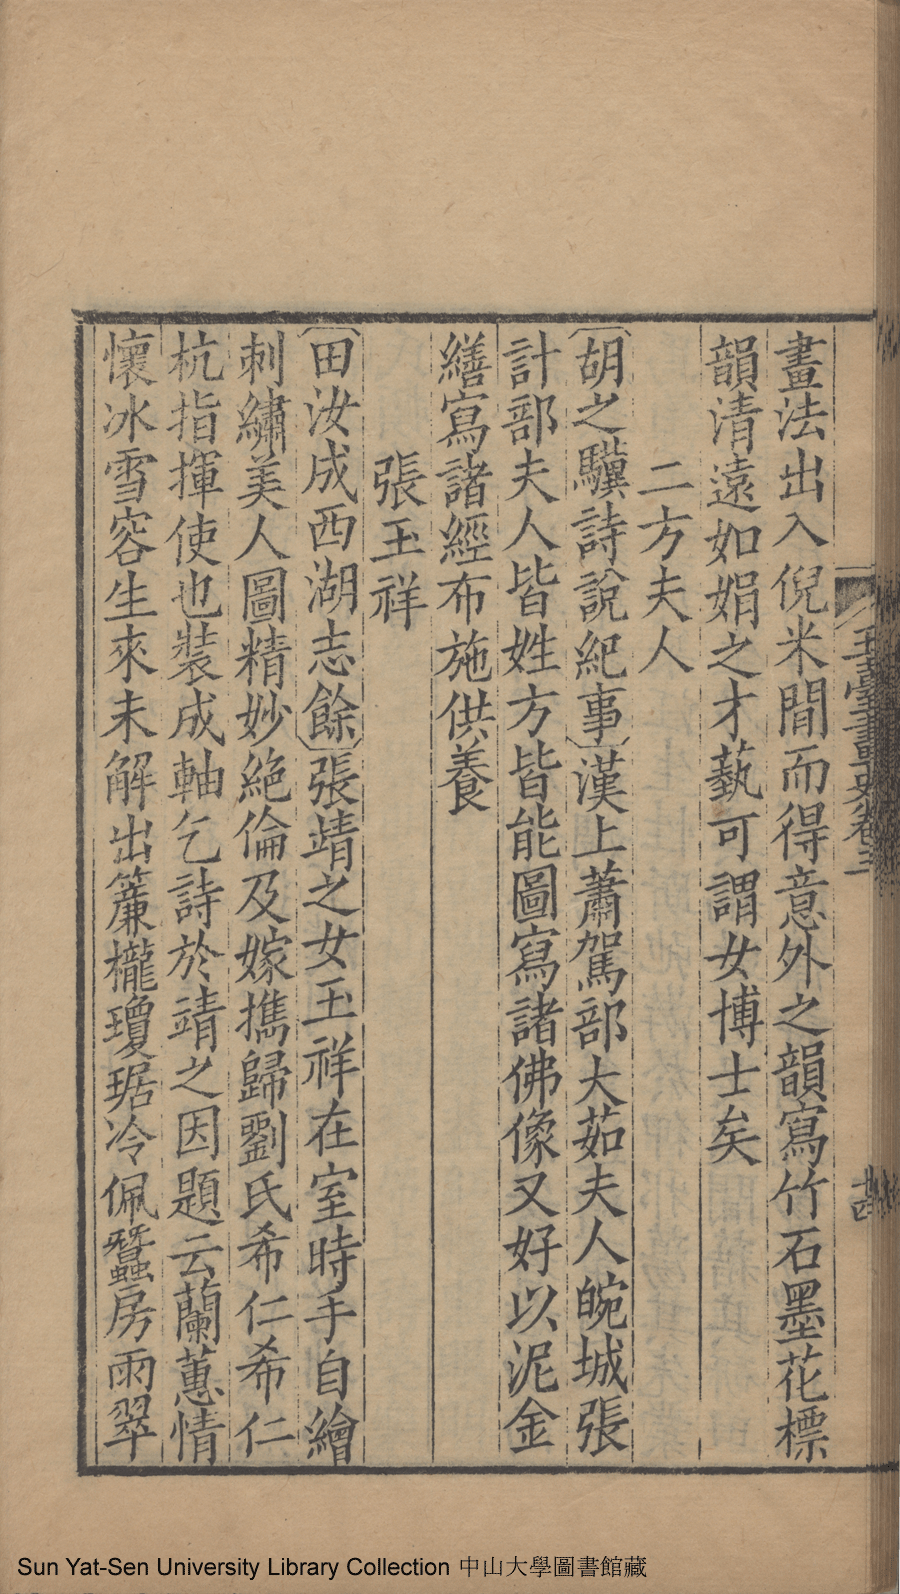 畫法出入倪米間而得意外之韻寫竹石墨花標
韻清遠如娟之才藝可謂女博士矣
二方夫人
〔胡之驥詩說紀事〕漢上蕭駕部大茹夫人皖城張
計部夫人皆姓方皆能圖寫諸佛像又好以泥金
繕寫諸經布施供養
張玉祥
〔田汝成西湖志餘〕張靖之女玉祥在室時手自繪
刺繡美人圖精妙絕倫及嫁攜歸劉氏希仁希仁
杭指揮使也裝成軸乞詩於靖之因題云蘭蕙情
懷冰雪容生來未解出簾櫳瓊琚冷佩蠶房雨翠
玉臺畫史卷三
十四
Sun Yat-Sen University Library Collection 中山大學圖書館藏